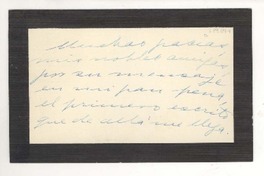 Muchas gracias,
mis nobles amigos
por su mensaje
en mi gran pena,
el primero escrito
que de allá me llega.